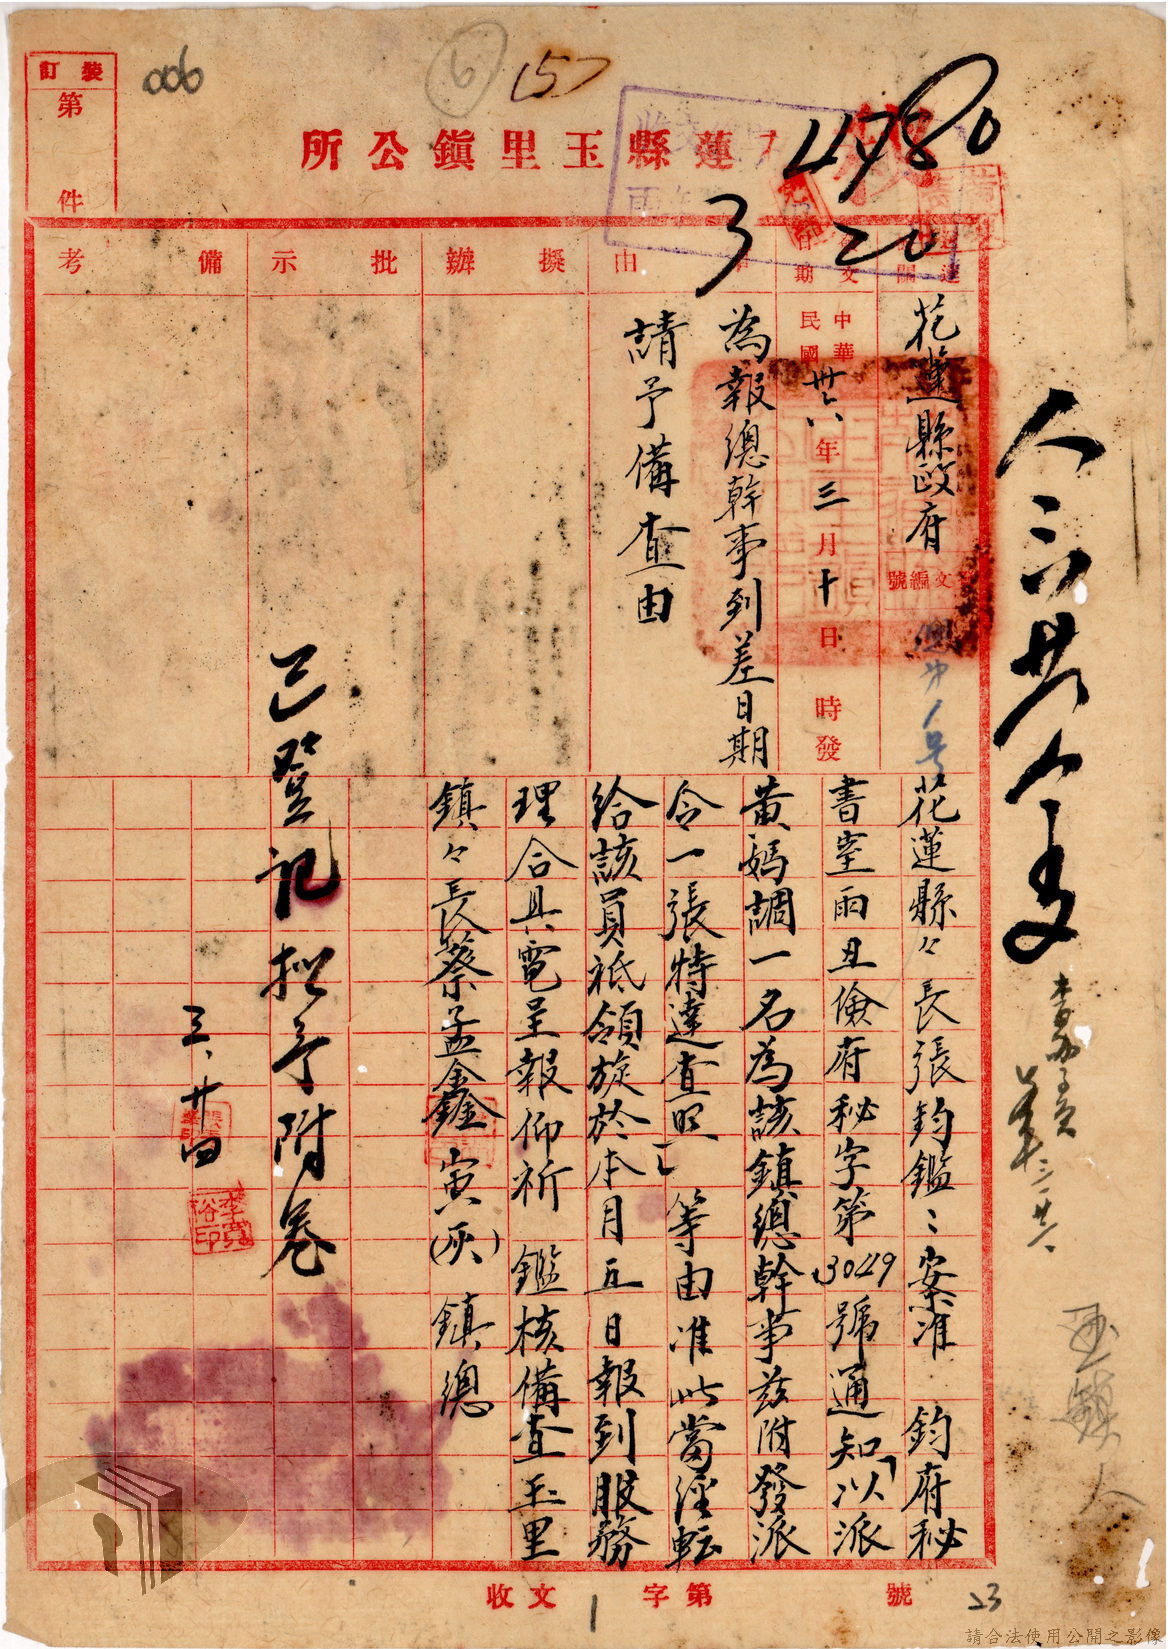 006
6
157
4980
3 20
裝訂
第
件
蓮縣玉里鎮公所
花蓮縣政府
發文編號
中華民國卅六年三月十日
時發
由
為報總幹事到差日期
請予備查由
擬辦
批示
備考
花蓮縣々長張鈞鑑:案准 鈞府秘
書室雨丑儉府秘字第3049號通知「以派
黃媽調一名為該鎮總幹事茲附發派
令一張特達查照」等由准此當經転
給該員祗領旋於本月五日報到服務
理合具電呈報仰祈 鑑核備查玉里
鎮々長蔡孟鑫 寅(灰) 鎮總
已登記擬予附卷
三、廿四
李寶裕印
收文 字第 號
1
23
請合法使用公開之影像